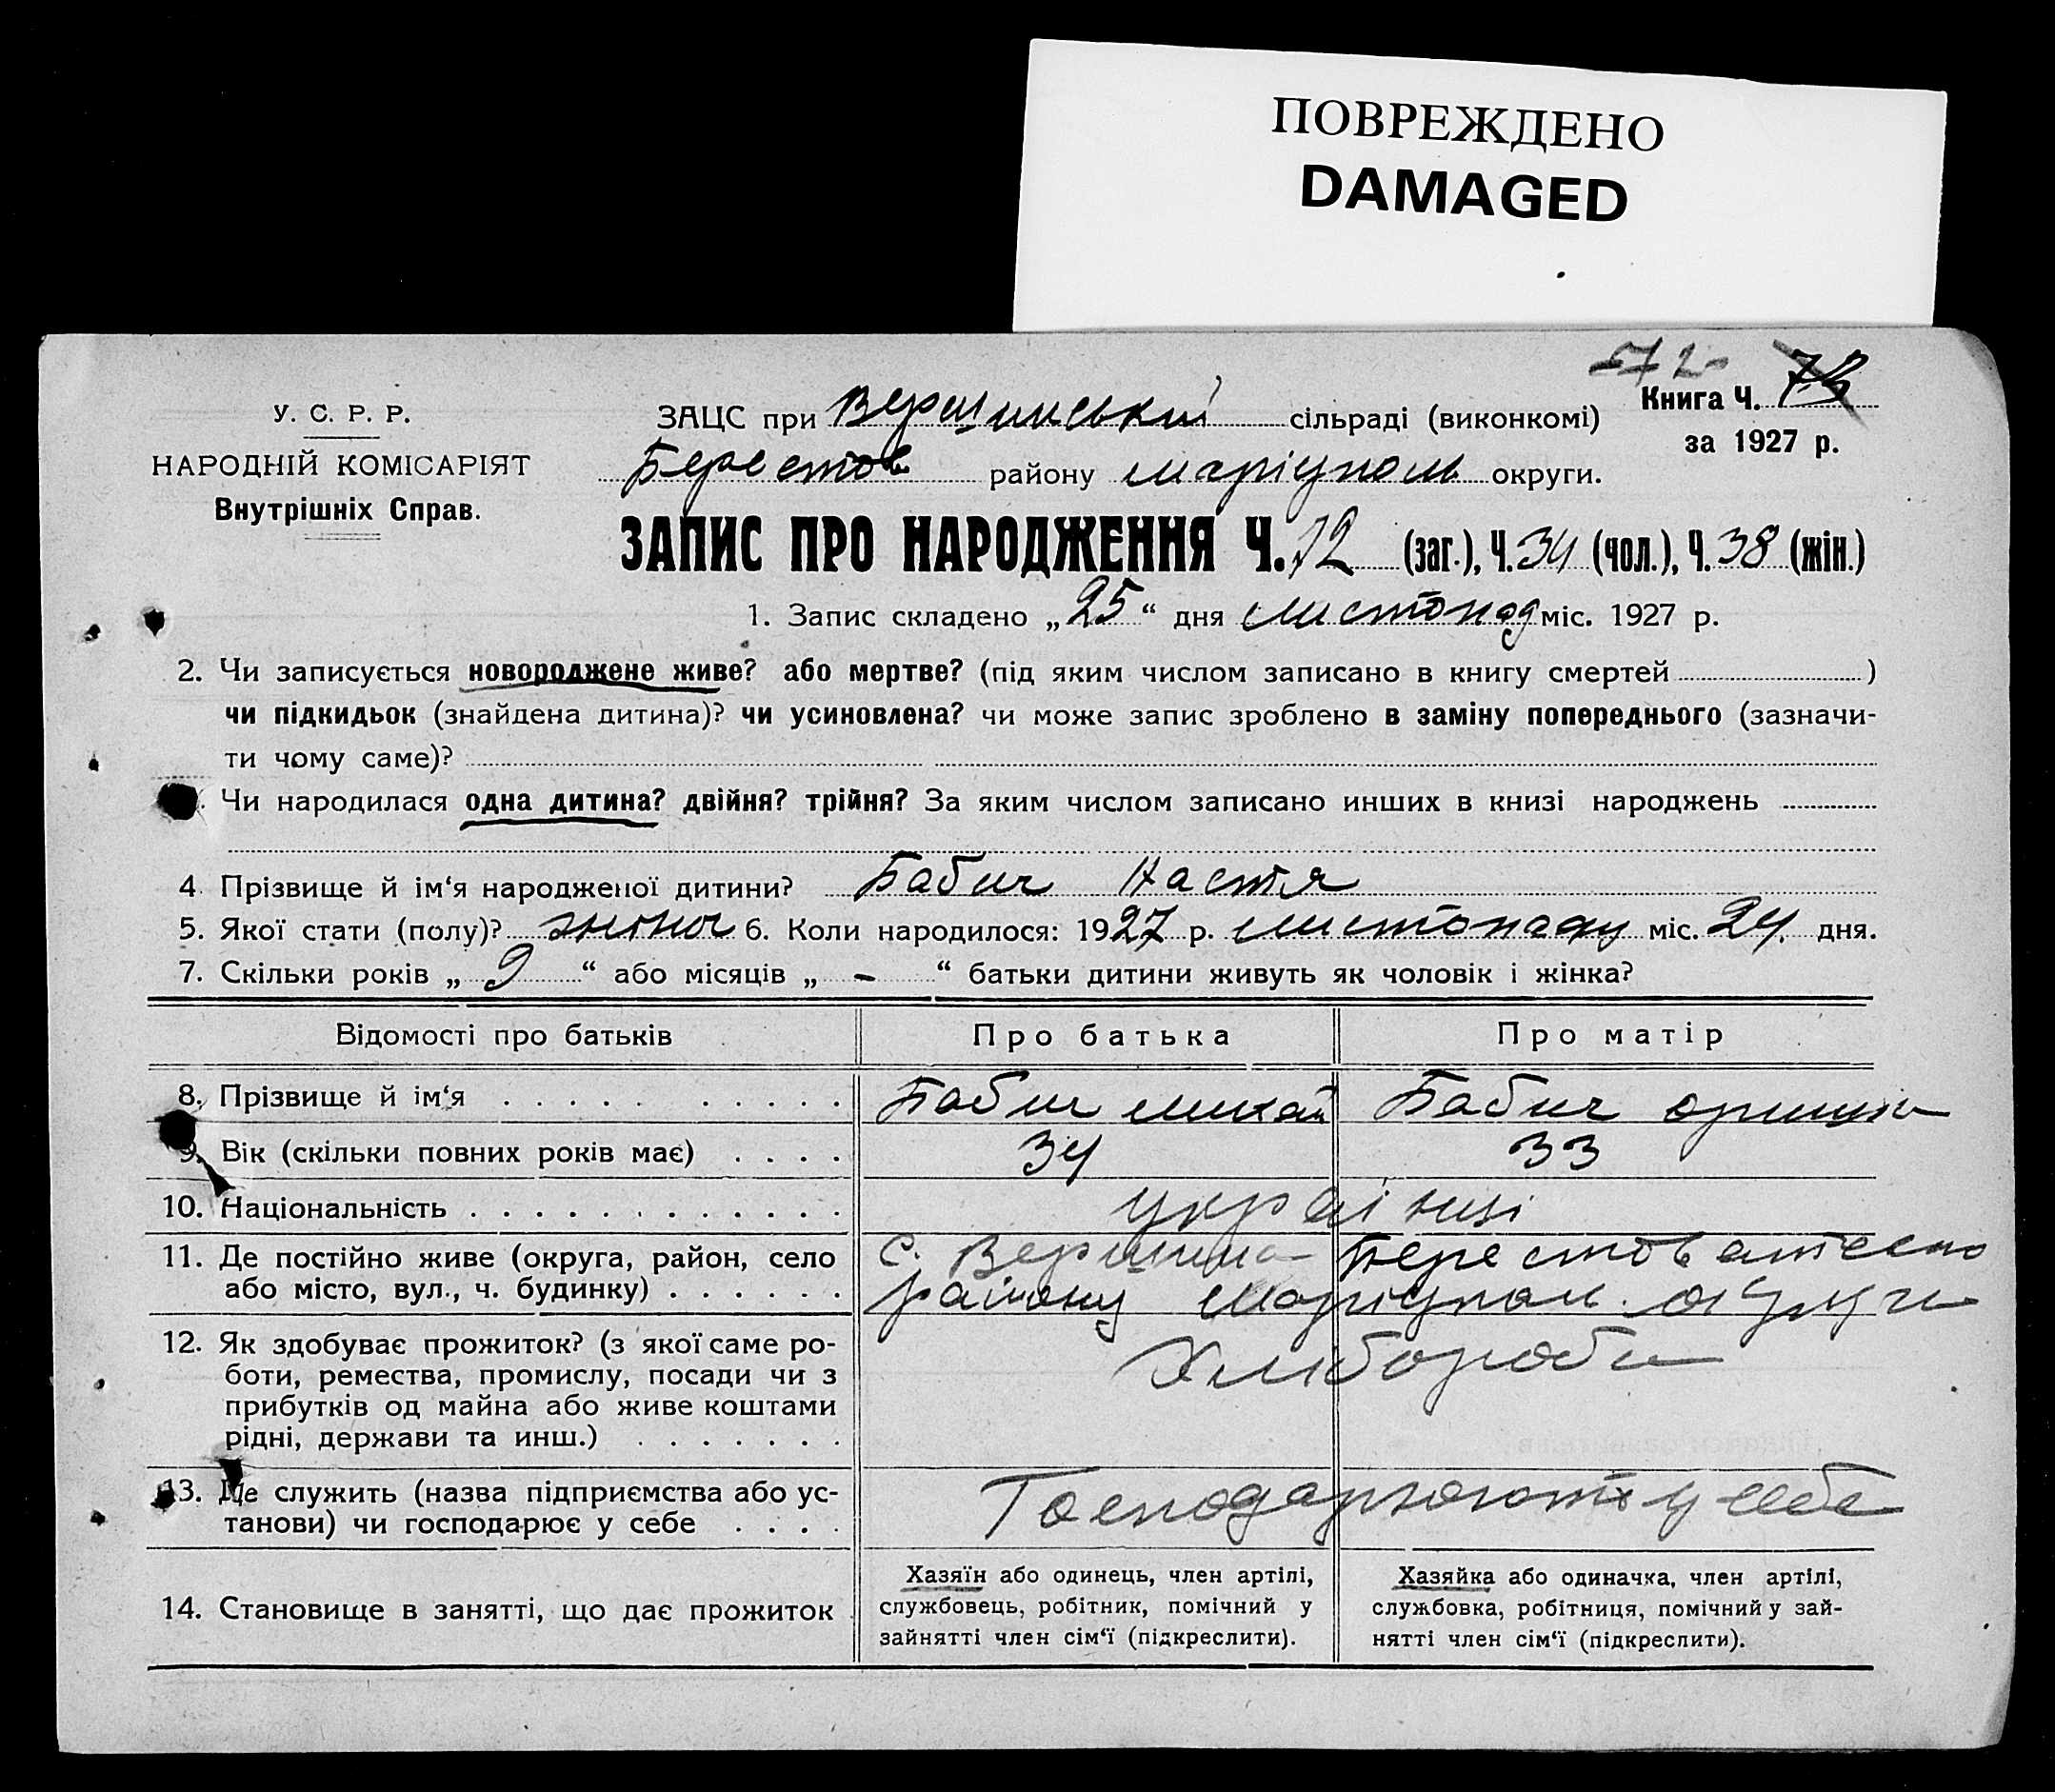 ПОВРЕЖДЕНО
DAMAGED
-72-
У. С. Р. Р.
НАРОДНІЙ КОМІСАРІЯТ
Внутрішніх Справ.
ЗАЦС при Вершинській сільраді (виконкомі)
Книга Ч. 73
за 1927 р.
Берестов району маріуполь округи.
ЗАПИС ПРО НАРОДЖЕННЯ Ч. 72 (заг.), Ч. 34 (чол.), Ч. 38 (жін.)
1. Запис складено „25“ дня листопад міс. 1927 р.
2. Чи записується новороджене живе? або мертве? (під яким числом записано в книгу смертей )
чи підкидьок (знайдена дитина)? чи усиновлена? чи може запис зроблено в заміну попереднього (зазначи-
ти чому саме)?
Чи народилася одна дитина? двійня? трійня? За яким числом записано инших в книзі народжень
4. Прізвище й ім‘я народженої дитини? Бабич Настя
5. Якої стати (полу)? жіноч 6. Коли народилося: 1927 р. листопаду міс. 24. дня.
7. Скільки років „9“ або місяців „-“ батьки дитини живуть як чоловік і жінка?
Відомості про батьків Про батька Про матір
8. Прізвище й ім‘я Бабич михай Бабич
9. Вік (скільки повних років має) 34 33
10. Національність українці
11. Де постійно живе (округа, район, село
або місто, вул., ч. будинку)
с. Вершина
району Маріупол. округи
12. Як здобуває прожиток? (з якої саме ро-
боти, ремества, промислу, посади чи з
прибутків од майна або живе коштами
рідні, держави та инш.)
Хлібороби
13. Де служить (назва підприємства або ус-
танови) чи господарює у себе
Господарюють у себе
14. Становище в занятті, що дає прожиток
Хазяїн або одинець, член артілі,
службовець, робітник, помічний у
зайнятті член сім‘ї (підкреслити).
Хазяйка або одиначка, член артілі,
службовка, робітниця, помічний у зай-
нятті член сім‘ї (підкреслити).